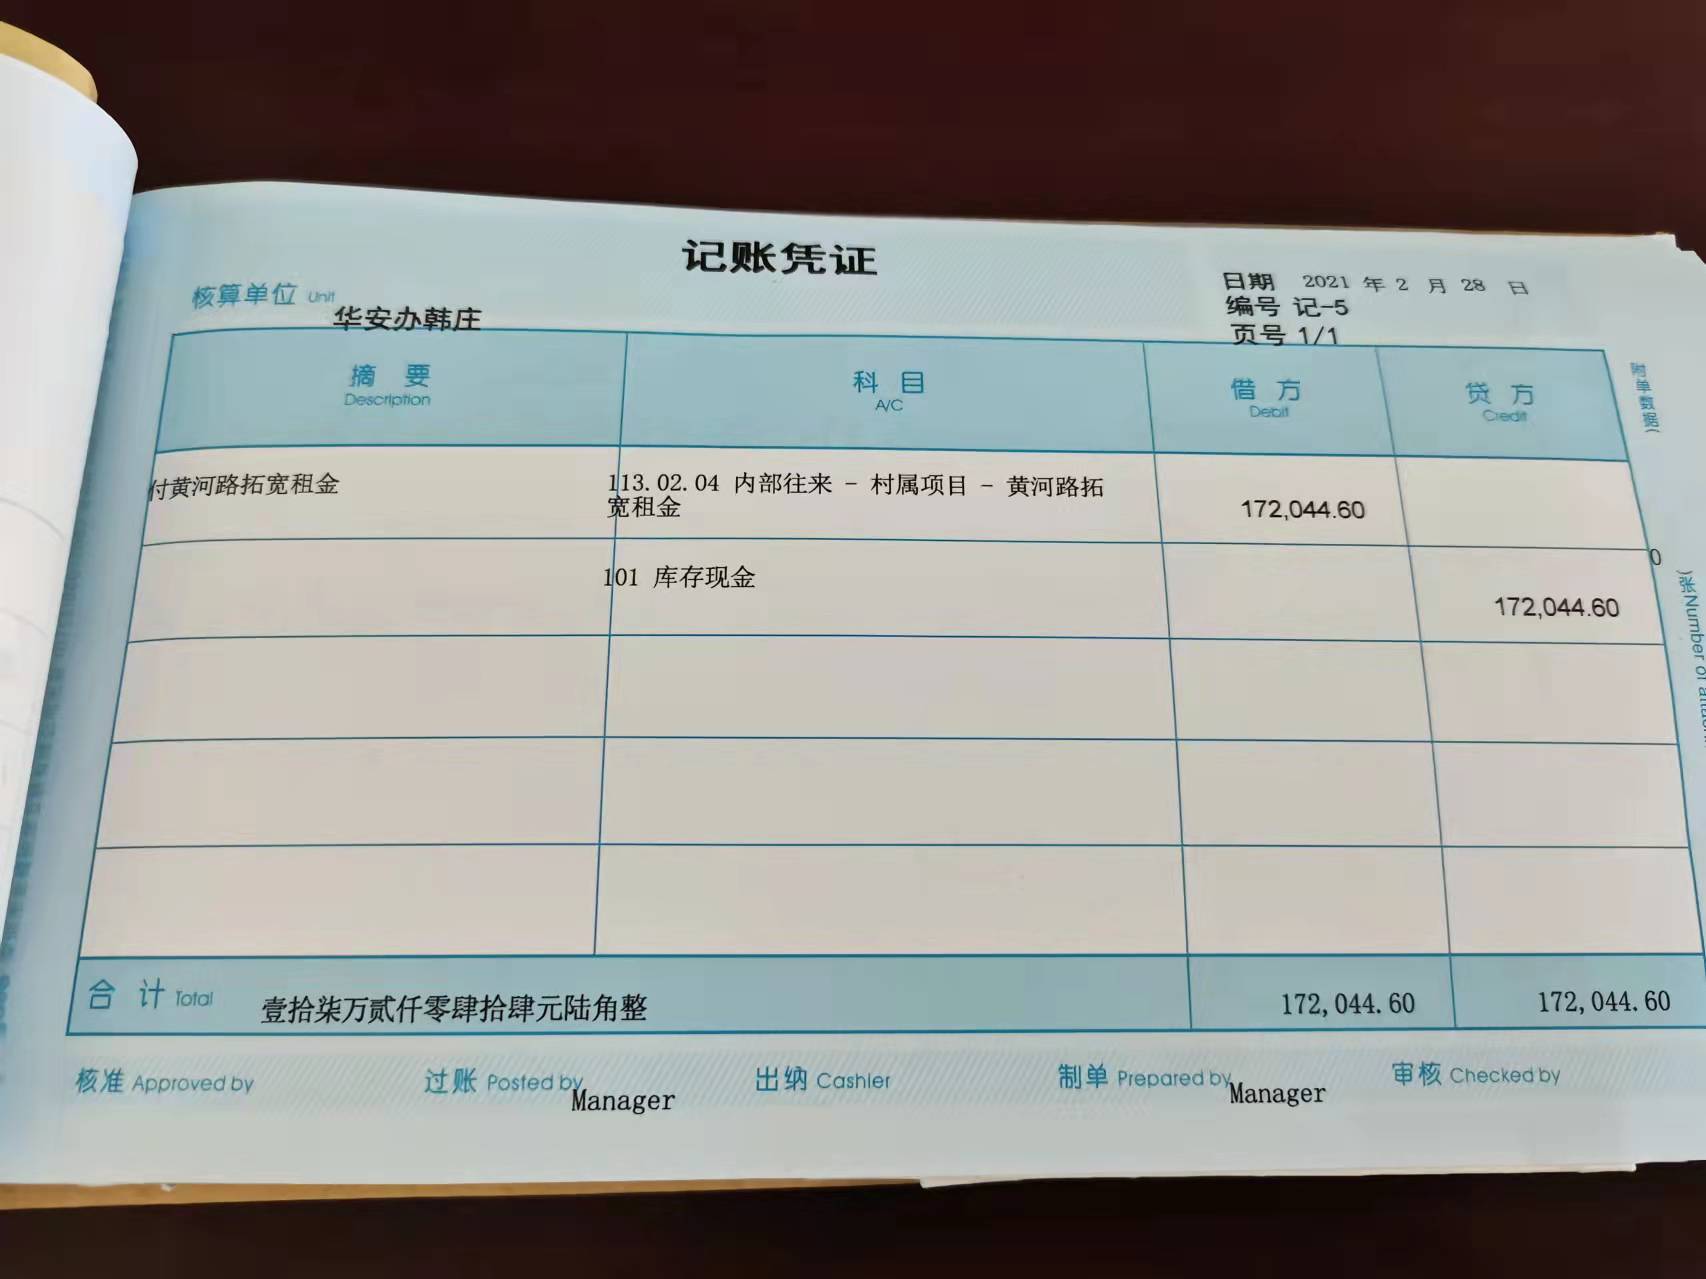 记账凭证
核算单位 Unit 华安办韩庄
日期 2021 年 2 月 28 日
编号 记-5
页号 1/1
摘 要 科 目 借 方 贷 方
Description A/C Debit Credit
付黄河路拓宽租金 113.02.04 内部往来 - 村属项目 - 黄河路拓
宽租金 172,044.60
101 库存现金 172,044.60
合 计 Total 壹拾柒万贰仟零肆拾肆元陆角整 172,044.60 172,044.60
核准 Approved by 过账 Posted by Manager 出纳 Cashier 制单 Prepared by Manager 审核 Checked by
附单数据(
0
)张 Number of